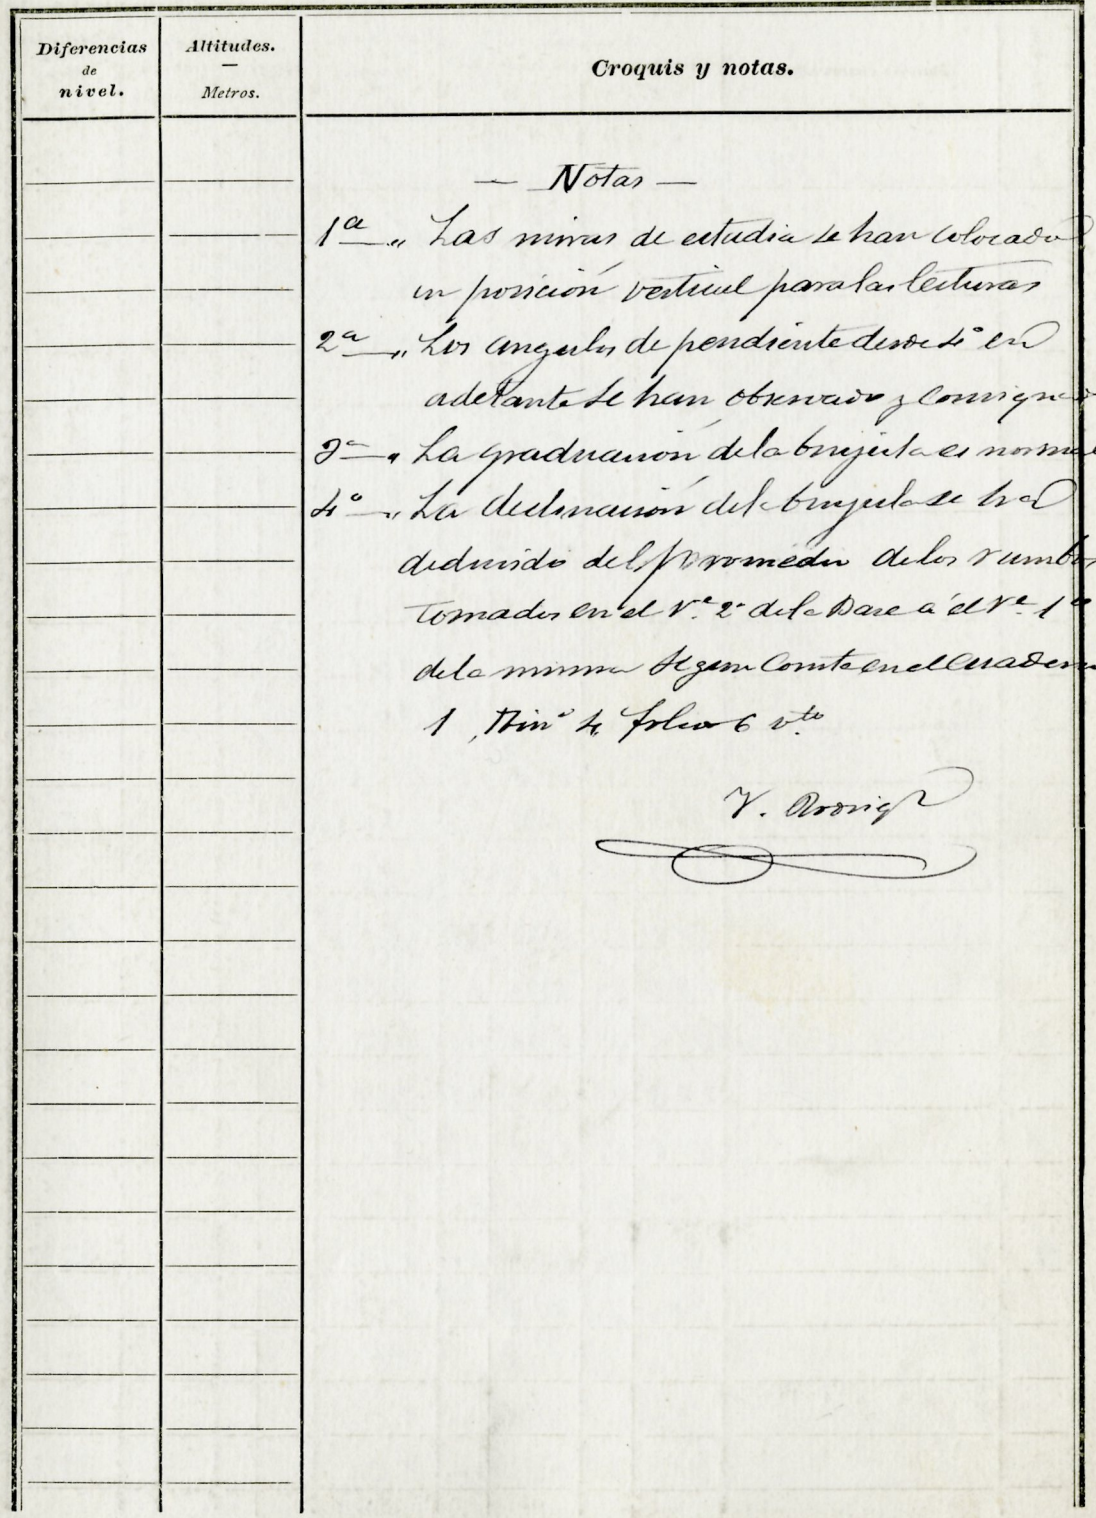 Diferencias
de
nivel.
Altitudes.
—
Metros.
Croquis y notas.
— Notas —
1ª — „ Las miras de estudia se han colocado
en posición vertical para las lecturas
2ª — „ Los angulos de pendiente desde 4° en
adelante se han observado y consignado
3ª — „ La graduación de la brujula es normal
4° — „ La declinación de la brujula se ha
deducido del promedio de los rumbos
tomados en el Vº 2º de la Base á el Vº 1º
de la misma segun consta en el cuaderno
1, Itinº 4, folio 6 vto
V. Rodrigz